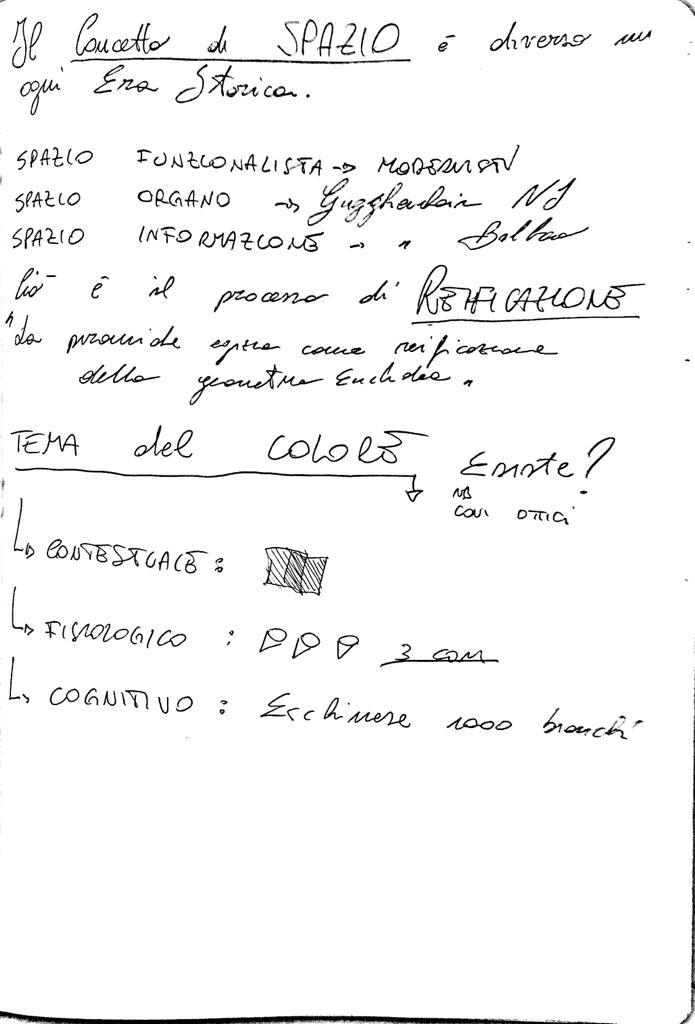 Il Concetto di SPAZIO è diverso in
ogni Era Storica.
SPAZIO FUNZIONALISTA → MODERNISTI
SPAZIO ORGANO →
SPAZIO INFORMAZIONE → " Bilbao
Ciò è il processo di REIFICAZIONE
"La piramide egizia come reificazione
della geometria Euclidea"
TEMA del COLORE Esiste?
NB
coni ottici
CONTESTUALE:
FISIOLOGICO: 3 coni
COGNITIVO: Eschimese 1000 bianchi